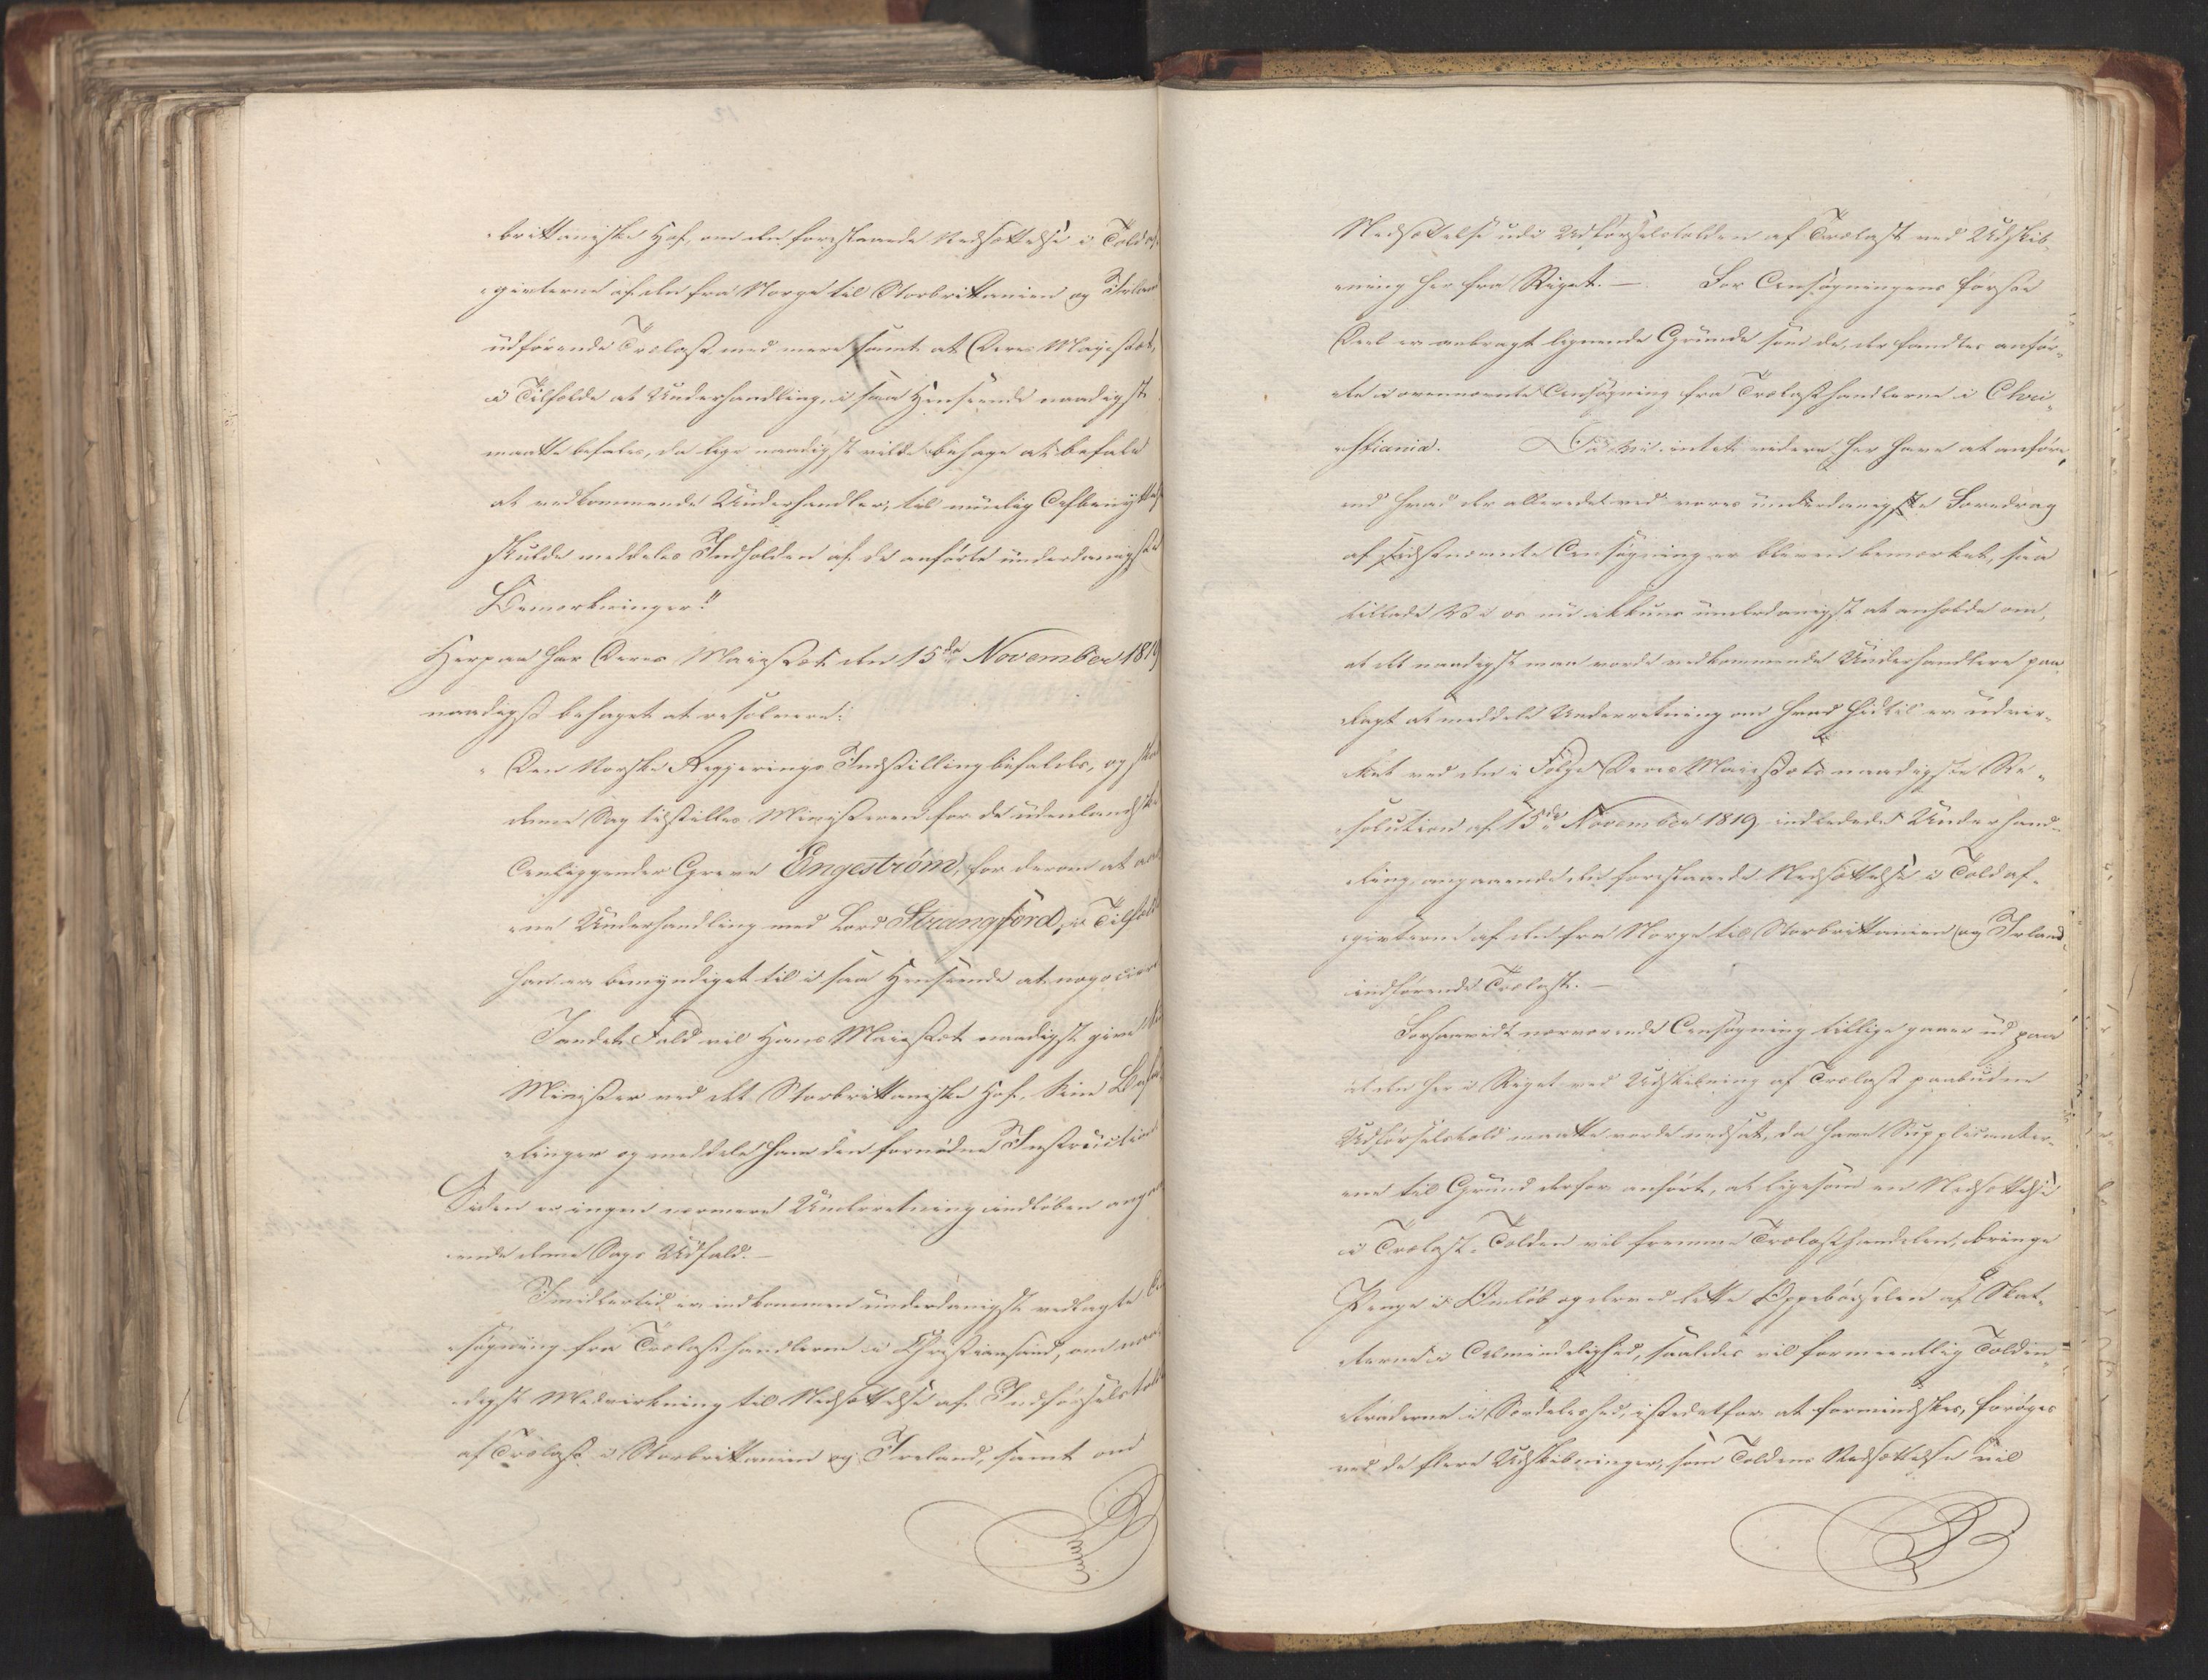 brittaniske Hof, om den forestaaende Nedsættelse i Toldaf
givterne af den fra Norge til Storbrittanien og Irland
udførende Trælast med mere samt at Deres Majestæt,
i Tilfælde at Underhandling, i saa Henseende naadigst
maatte befales, da lige naadigst vilde behage at befale
at vedkommende Underhandler, til muelig Afbenyttelse
skulde meddeles Indholden af de anførte underdanigste
Bemærkninger."
Herpaa har Deres Majestæt den 15de November 1819
naadigst behaget at resolvere:
"Den Norske Regjerings Indstilling bifaldes, og skal
denne Sag tilstilles Ministeren for de udenlandske
Anliggender Greve Engeström, for derom at aab
ne Underhandling med Lord Strangford, i Tilfælde
han er bemyndiget til i saa Henseende at negociere
I andet Fald vil Hans Majestæt naadigst give Sin
Minister ved det Storbrittaniske Hof, sine Befa
linger og meddele ham den fornødne Instruction
Siden er ingen nærmere Underretning indløben angaa
ende denne Sags Udfald.—
Imidlertid er indkommen underdanigst vedlagte An
søgning fra Trælasthandlerne i Christiansand, om naa
digst Medvirkning til Nedsættelse af Indførselstolden
af Trælast i Storbrittanien og Ireland, samt om
Nedsættelse udi Udførselstolden af Trælast ved Udskib-
ning her fra Riget.— For Ansøgningens første
Deel er anbragt lignende Grunde som de, der fandtes anfør-
te i ovennævnte Ansøgning fra Trælasthandlerne i Chri-
stiania. Da Vi intet videre her have at anføre,
end hvad der allerede ved vores underdanigste Foredrag
af sidstnævnte Ansøgning er bleven bemærket, saa
tillade Vi os nu ikkuns underdanigst at anholde om,
at det naadigst maa vorde vedkommende Underhandlere paa-
lagt at meddele Underretning om hvad hidtil er udvir-
ket ved den i Følge Deres Majestæts naadigste Re-
solution af 15de November 1819 indledede Underhand-
ling, angaaende den forestaaende Nedsættelse i Toldaf-
givterne af den fra Norge til Storbrittanien og Irland
indførende Trælast.—
Forsaavidt nærværende Ansøgning tillige gaaer ud paa
at den her i Riget ved Udskibning af Trælast paabudne
Udførselstold maatte vorde nedsat, da have Supplicanter-
ne til Grund derfor anført, at ligesom en Nedsættelse
i Trælast-Tolden vil fremme Trælasthandelen, bringe
Penge i Omløb og derved lette Oppebørselen af Skat-
terne i Almindelighed, saaledes vil formeentlig Toldin-
traderne i Særdeleshed, istedetfor at formindskes, forøges
ved de flere Udskibninger, som Toldens Nedsættelse vil